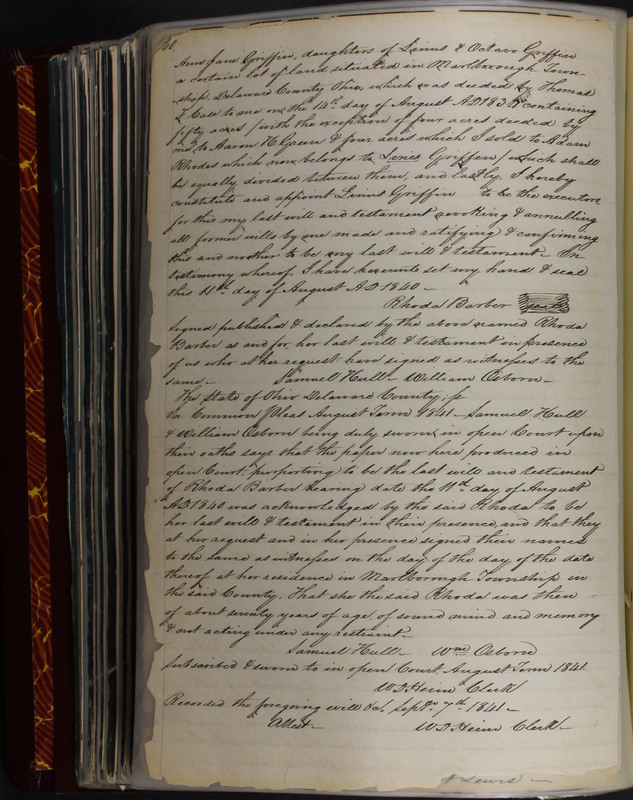 Ann Jane Griffin, daughters of Linus & Octavo Griffin
a certain lot of land situated in Marlborough Town-
ship, Delaware County Ohio, which was deeded by Thomas
Z Case to me on the 14th day of August AD 1835 containing
fifty acres / with the exception of four acres deeded by
me to Aaron H Green & four acres which I sold to Adam
Rhodes which now belongs to Linus Griffin / which shall
be equally divided between them, and lastly, I hereby
constitute and appoint Linus Griffin to be the executor
for this my last will and testament revoking & annulling
all former wills by me made and ratifying & confirming
this and no other to be my last will & testament - In
testimony whereof I have hereunto set my hand & seal
this 11th day of August AD 1840 -
Rhoda Barber seal
Signed published & declared by the above named Rhoda
Barber as and for her last will & testament in presence
of us who at her request have signed as witnesses to the
same - Samuel Hull - William Osborn -
The State of Ohio Delaware County; ss
Common Pleas August Term 1841 - Samuel Hull
& William Osborn being duly sworn in open Court upon
their oaths says that the paper now here produced in
open Court purporting to be the last will and testament
of Rhoda Barber bearing date the 11th day of August
AD 1840 was acknowledged by the said Rhoda to be
her last will & testament in their presence, and that they
at her request and in her presence signed their names
to the same as witnesses on the day of the day of the date
thereof at her residence in Marlborough Township in
the said County. That she the said Rhoda was then
of about seventy years of age, of sound mind and memory
& not acting under any restraint -
Samuel Hull - Wm Osborn
Subscribed & sworn to in open Court August Term 1841
W D Heim Clerk
Recorded the foregoing will &c. Septr 7th 1841 -
Attest - W D Heim Clerk -
Lewis -